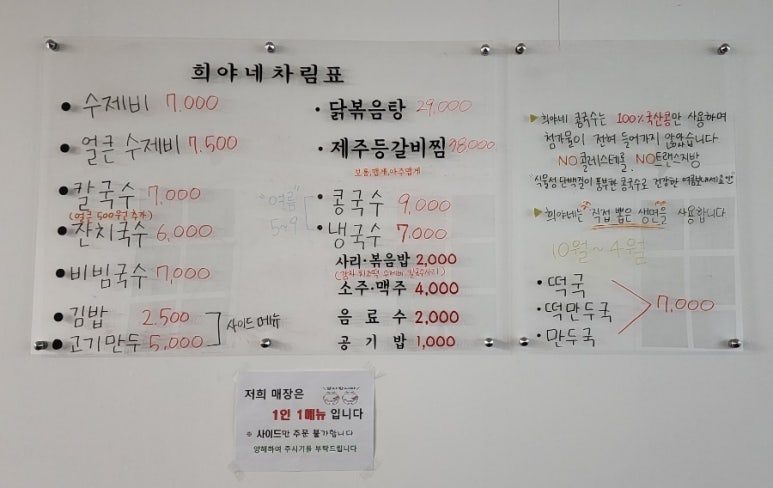 희야네차림표
• 수제비 7,000
• 얼큰 수제비 7,500
• 칼국수 7,000
(얼큰 500원 추가)
• 잔치국수 6,000
• 비빔국수 7,000
• 김밥 2.500
• 고기만두 5,000
사이드메뉴
• 닭볶음탕 29,000
• 제주등갈비찜 38,000
보통,맵게,아주맵게
"여름"
5~9
• 콩국수 9,000
• 냉국수 7,000
사리·볶음밥 2,000
소주·맥주 4,000
음료수 2,000
공기밥 1,000
▶희야네 콩국수는 100%국산콩만 사용하며
첨가물이 전혀 들어가지 않았습니다
NO콜레스테롤, NO트랜스지방
"식물성 단백질이 풍부한 콩국수로 건강한 여름보내세요"
▶희야네는 "직접 뽑은 생면"을 사용합니다
10월~4월
• 떡국
• 떡만두국
• 만두국
7,000
저희 매장은
1인 1메뉴 입니다
※ 사이드만 주문 불가합니다
양해하여 주시기를 부탁드립니다